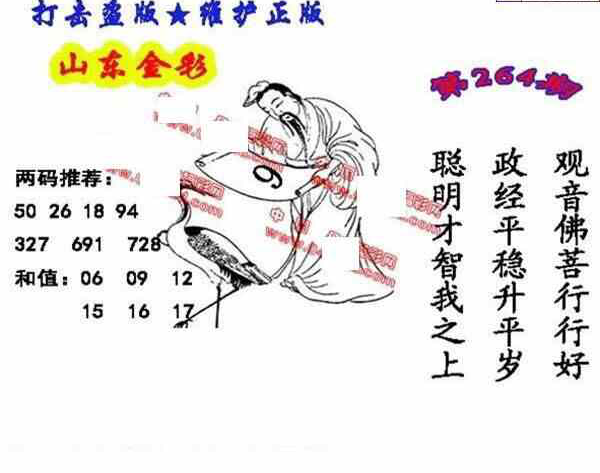 打击盗版★维护正版
山东金彩
第264期
两码推荐：
50 26 18 94
327 691 728
和值：06 09 12
15 16 17
9
观音佛菩行行好
政经平稳升平岁
聪明才智我之上